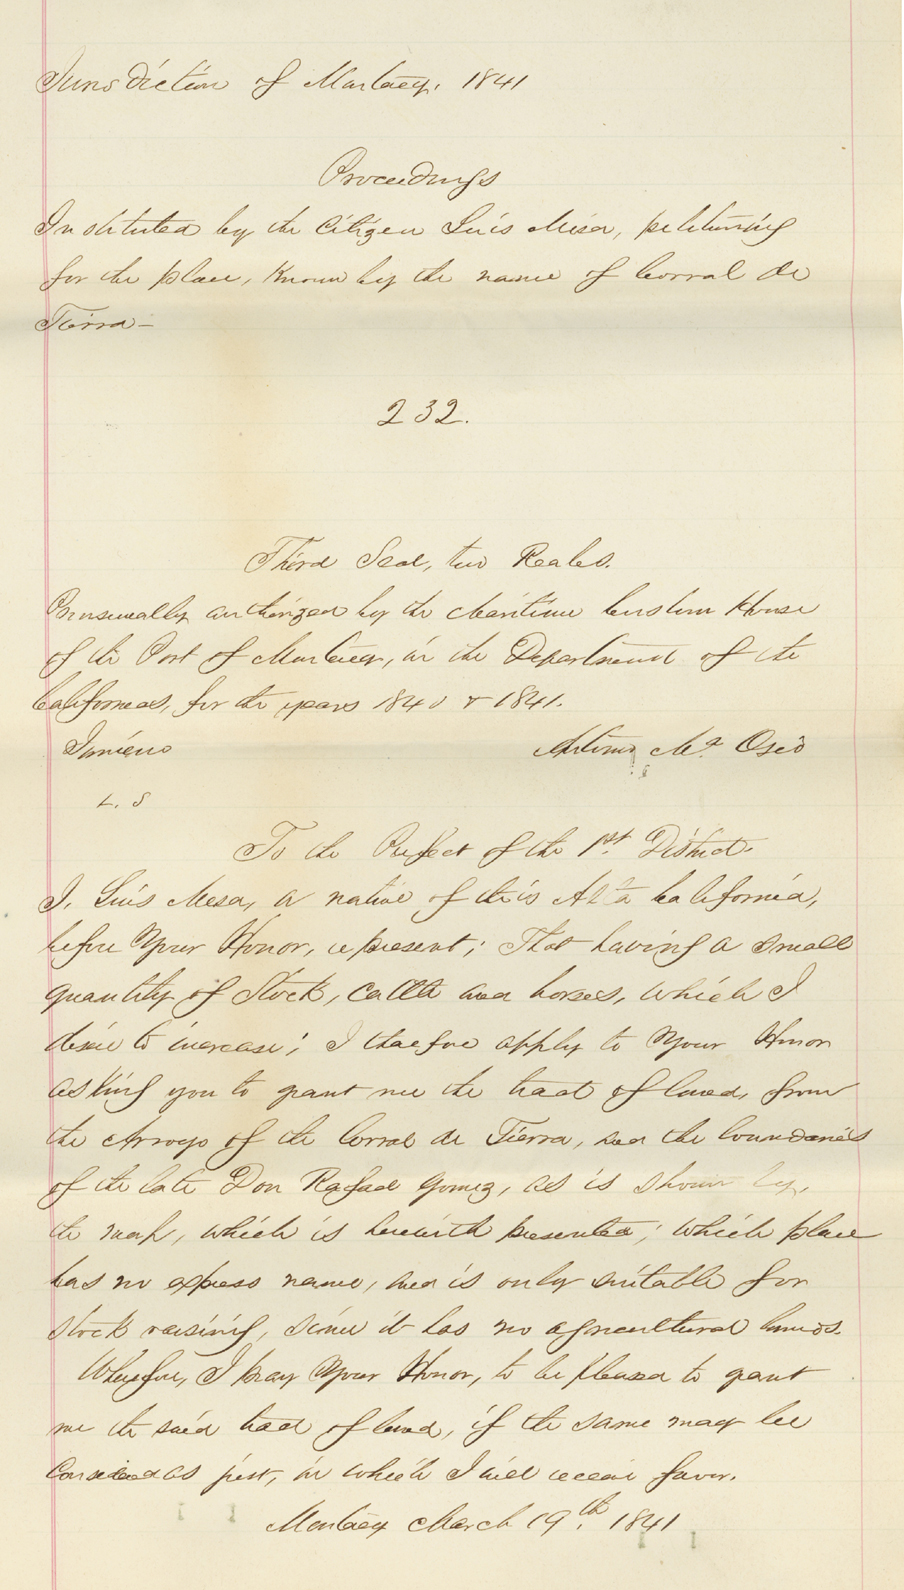 Jurisdiction of Monterey. 1841
Proceedings
Instituted by the Citizen Luis Mesa, petitioning
for the place, known by the name of Corral de
Tierra—
232.
Third Seal, two Reales.
Provisionally authorized by the Maritime Custom House
of the Port of Monterey, in the Department of the
Californias, for the years 1840 & 1841.
Jimeno Antonio Ma. Osio
L. S
To the Prefect of the 1st. District.
I, Luis Mesa, a native of this Alta California,
before Your Honor, represent; That having a small
quantity of Stock, cattle and horses, which I
desire to increase; I therefore apply to Your Honor
asking you to grant me the tract of land, from
the Arroyo of the Corral de Tierra, and the boundaries
of the late Don Rafael Gomez, as is shown by,
the map, which is herewith presented; which place
has no express name, and is only suitable for
stock raising, since it has no agricultural lands.
Wherefore, I pray Your Honor, to be pleased to grant
me the said tract of land, if the same may be
Considered as just, in which I will receive favor.
Monterey March 19th. 1841